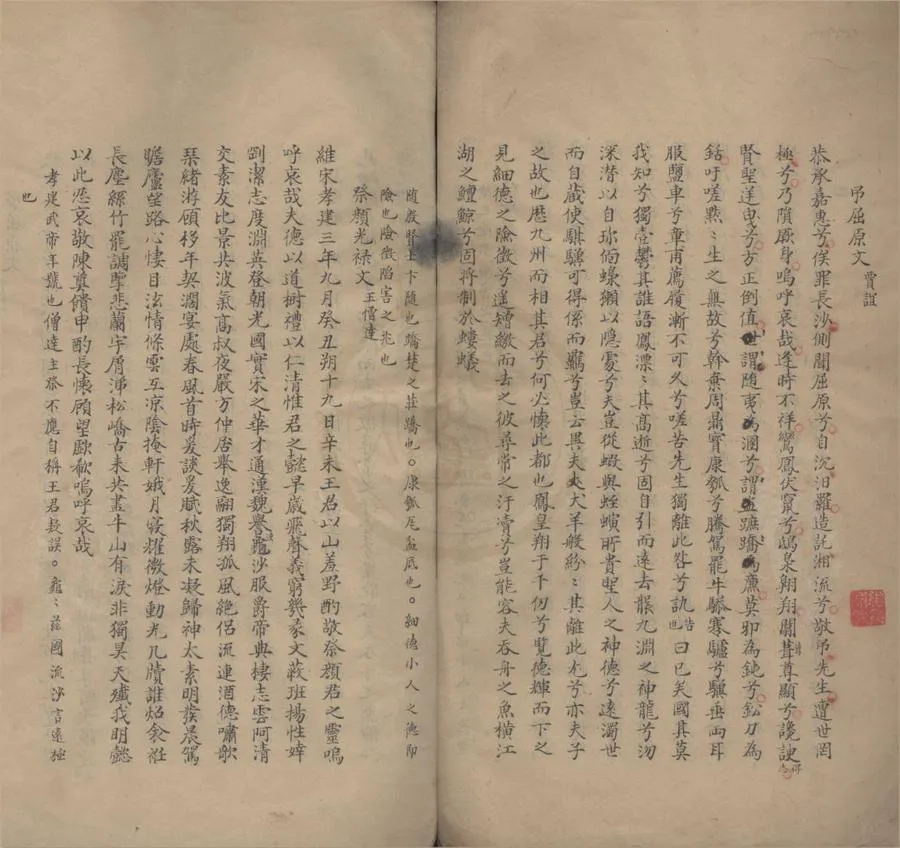 吊屈原文 賈誼
恭承嘉惠兮俟罪長沙側聞屈原兮自沉汨羅造託湘流兮敬吊先生遭世罔
極兮乃隕厥身嗚呼哀哉逢時不祥鸞鳳伏竄兮鴟梟翱翔闒茸尊顯兮讒諛得志
賢聖逆曳兮方正倒值世謂隨夷為溷兮謂蹠蹻為廉莫邪為鈍兮鉛刀為
銛吁嗟默〻生之無故兮斡棄周鼎寶康瓠兮騰駕罷牛驂蹇驢兮驥垂兩耳
服鹽車兮章甫薦履漸不可久兮嗟苦先生獨離此咎兮訊告也曰已矣國其莫
我知兮獨壹鬱其誰語鳳漂〻其高逝兮固自引而遠去襲九淵之神龍兮沕
深潜以自珍偭蟂獺以隱處兮夫豈從蝦與蛭螾所貴聖人之神德兮遠濁世
而自藏使騏驥可得係而羈兮豈云異夫犬羊般紛〻其離此尤兮亦夫子
之故也歷九州而相其君兮何必懷此都也鳳皇翔于千仞兮覽德輝而下之
見細德之險徵兮遥矰繳而去之彼尋常之汙瀆兮豈能容夫吞舟之魚橫江
湖之鱣鯨兮固將制於螻蟻
隨殷賢士卞隨也蹻楚之莊蹻也。康瓠瓦盆底也。細德小人之德即
險也險徵陷害之兆也
祭顏光禄文 王僧達
維宋孝建三年九月癸丑朔十九日辛未王君以山羞野酌敬祭顏君之靈嗚
呼哀哉夫德以道樹禮以仁清惟君之懿早歲飛聲義窮幾彖文蔽班揚性婞
剛潔志度淵英登朝光國實宋之華才通漢魏譽浹龜沙服爵帝典棲志雲阿清
交素友比景共波氣高叔夜嚴方仲舉逸翮獨翔孤風絶侣流連酒德嘯歌
琴緒游顧移年契濶宴處春風首時爰談爰賦秋露未凝歸神太素明發晨駕
瞻廬望路心悽目泫情條雲互凉陰掩軒娥月寢耀微燈動光几牘誰炤衾袵
長塵絲竹罷調擥悲蘭宇屑涕松嶠古来共盡牛山有淚非獨昊天殲我明懿
以此忍哀敬陳奠饋申酌長懷顧望歔欷嗚呼哀哉
孝建武帝年號也僧達主祭不應自稱王君疑誤。龜〻茲國流沙言遠極
也